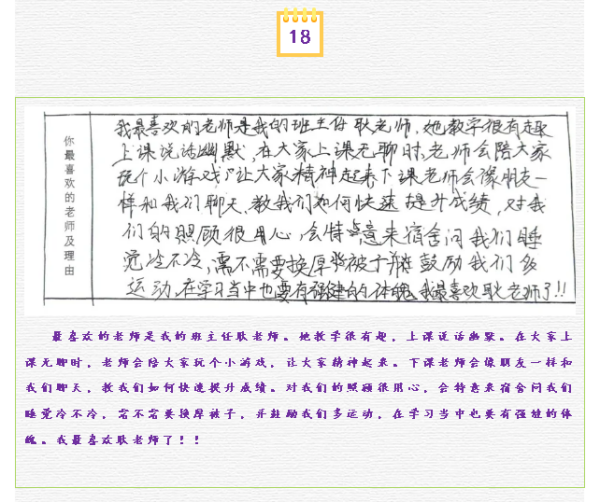 18
你最喜欢的老师及理由
我最喜欢的老师是我的班主任耿老师,她教学很有趣
上课说话幽默,在大家上课无聊时,老师会陪大家
玩个小游戏,让大家精神起来下课老师会像朋友一
样和我们聊天,教我们如何快速提升成绩,对我
们的照顾很用心,会特意来宿舍问我们睡
觉冷不冷,需不需要换厚被子,并鼓励我们多
运动,在学习当中也要有强健的体魄,我最喜欢耿老师了!!
最喜欢的老师是我的班主任耿老师。她教学很有趣,上课说话幽默。在大家上
课无聊时,老师会陪大家玩个小游戏,让大家精神起来。下课老师会像朋友一样和
我们聊天,教我们如何快速提升成绩。对我们的照顾很用心,会特意来宿舍问我们
睡觉冷不冷,需不需要换厚被子,并鼓励我们多运动,在学习当中也要有强健的体
魄。我最喜欢耿老师了!!